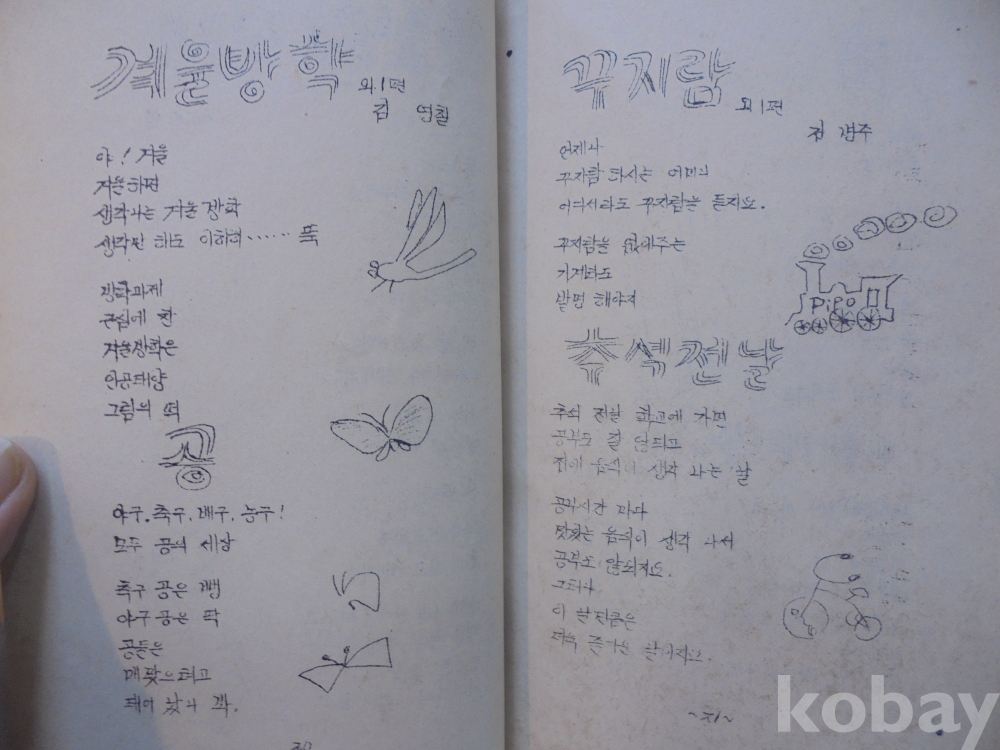 겨울방학
외 1편
김 영철
야! 겨울
겨울하면
생각나는 겨울방학
생각만 해도 이히히...... 뚝
방학과제
근심에 찬
겨울방학은
인공태양
그림의 떡
공
야구, 축구, 배구, 농구!
모두 공의 세상
축구 공은 뺑
야구 공은 딱
공들은
매맞으려고
태어 났나 봐.
30
꾸지람
외 1편
김 갑주
언제나
꾸지람 하시는 어머니
어디서라도 꾸지람을 듣지요.
꾸지람을 없애주는
기계라도
발명 해야지
PiPo
추석전날
추석 전날 학교에 가면
공부도 잘 안되고
전에 음식이 생각 나는 날
공부시간 마다
맛있는 음식이 생각 나서
공부도 안되지요.
그러나
이 날만큼은
더욱 즐거운 날이지요.
~31~
kobay